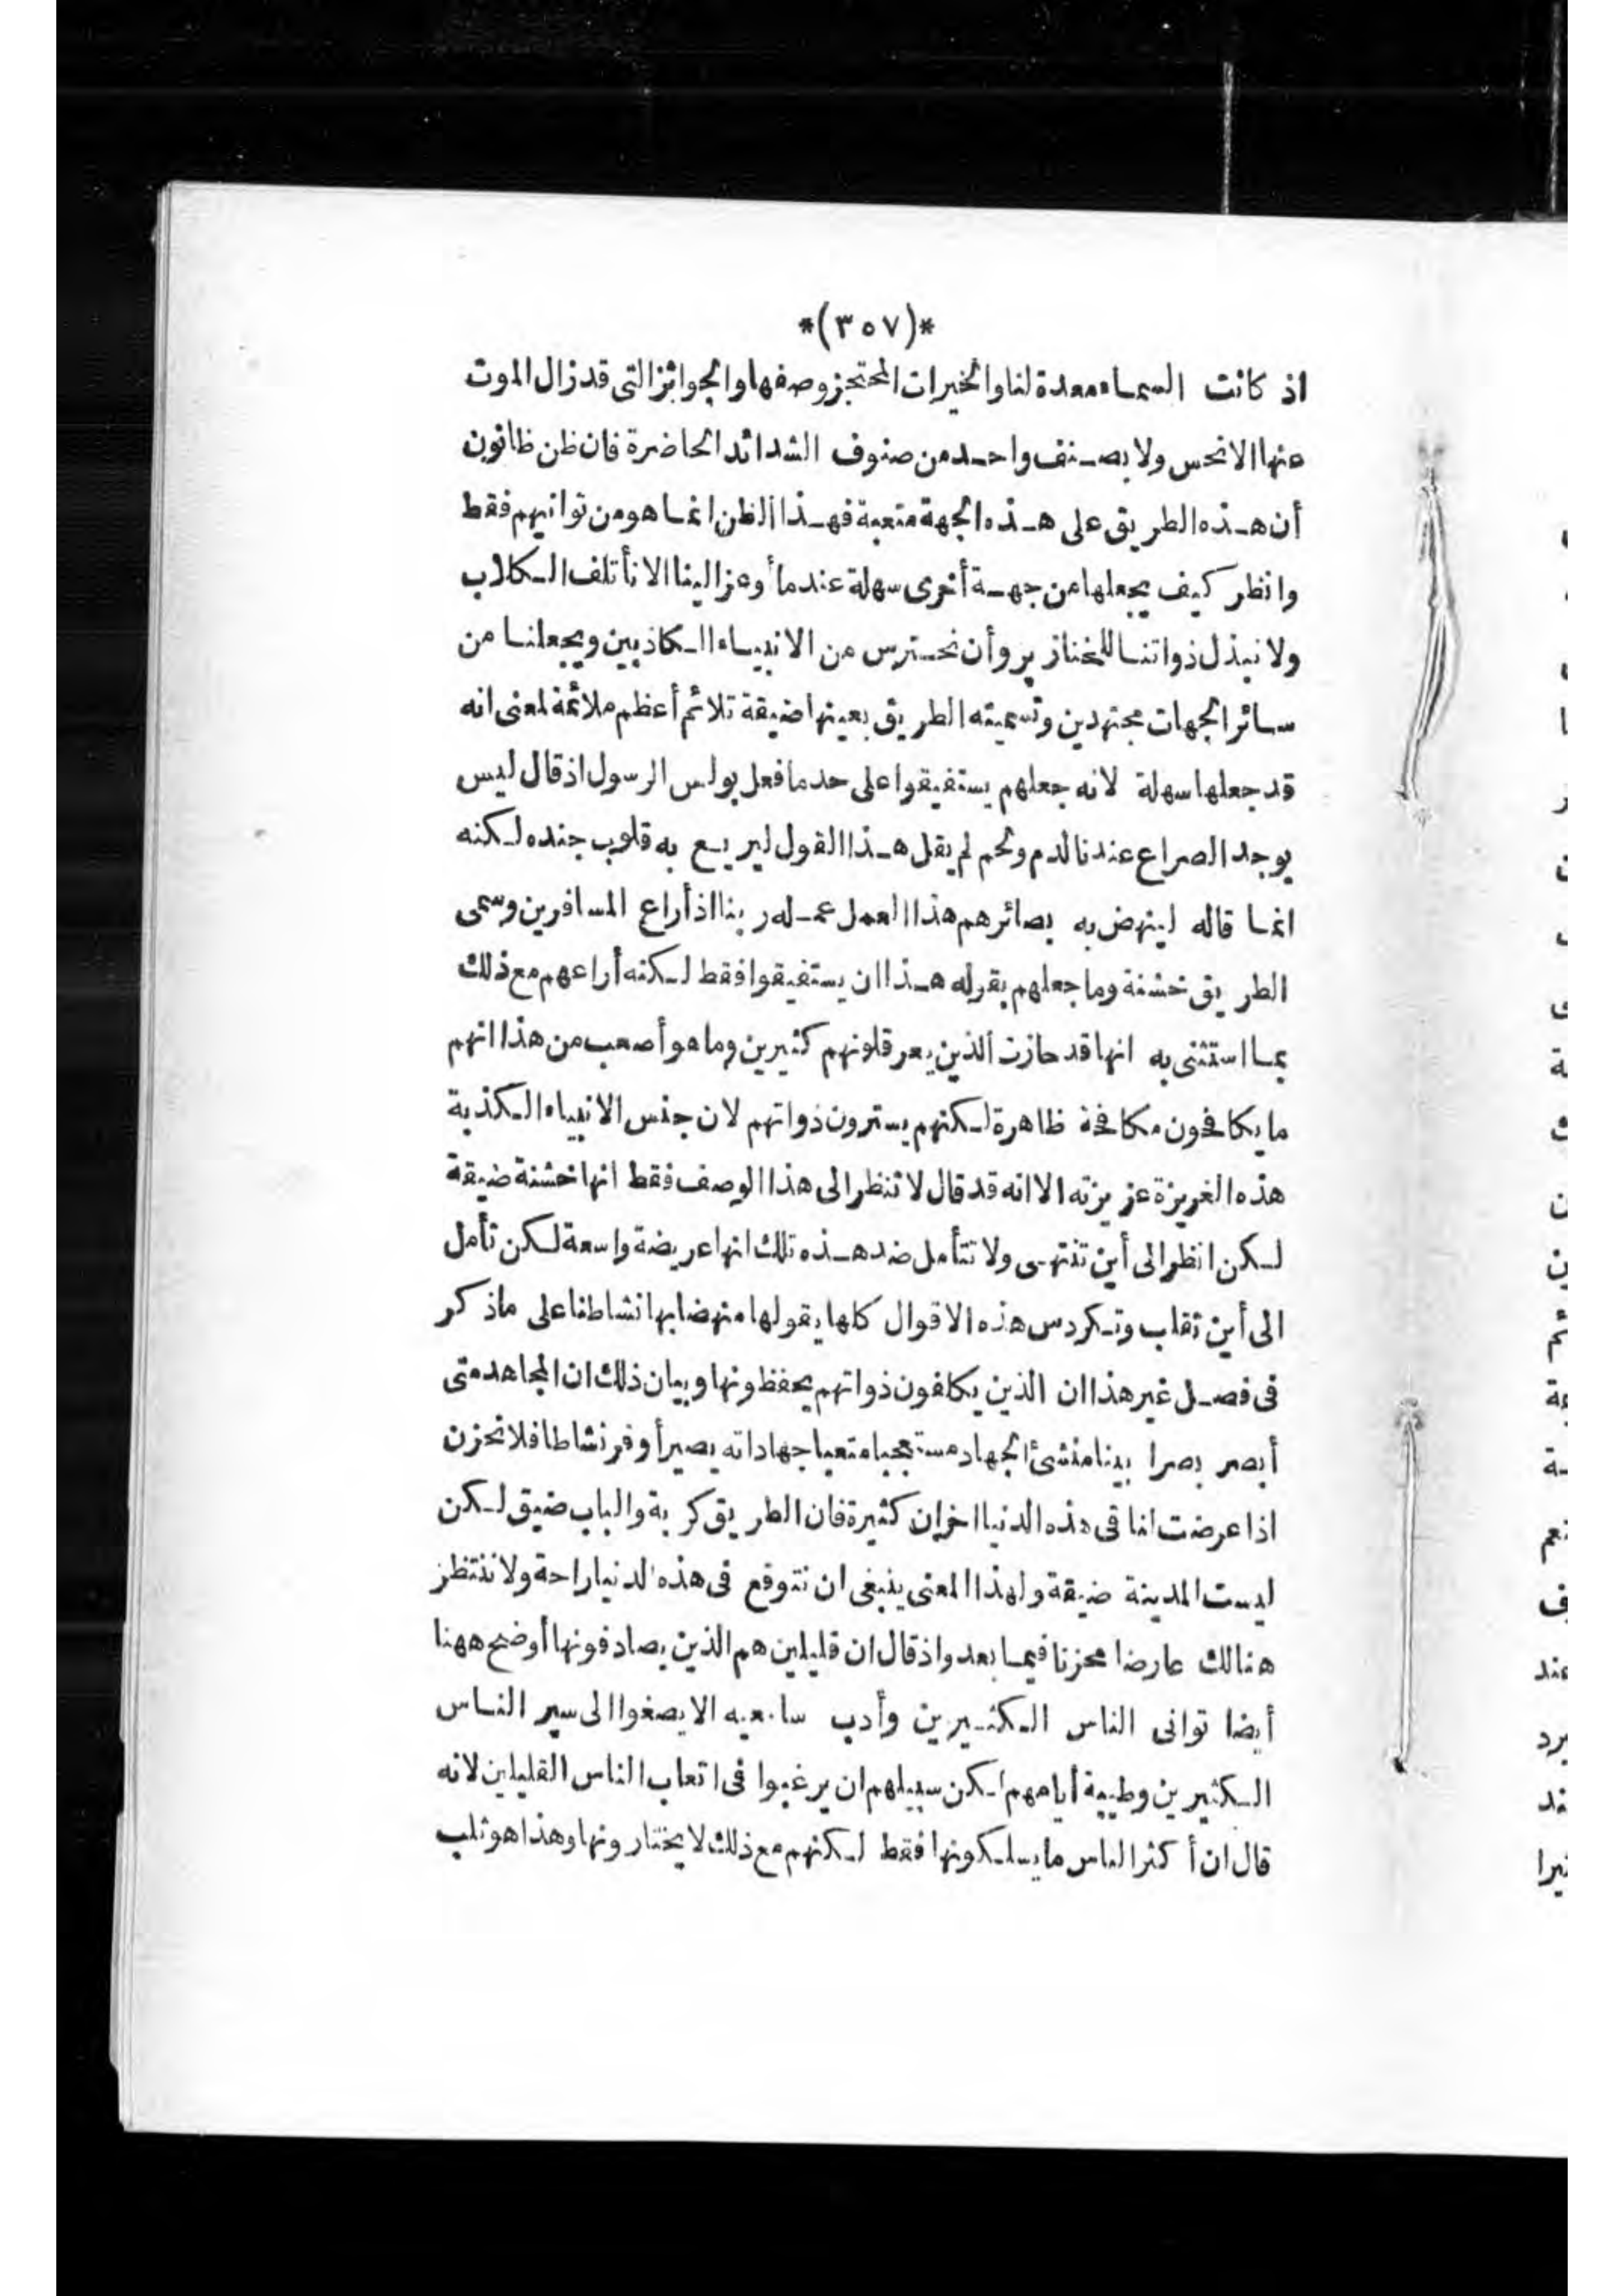 *(٣٥٧)*
اذ كانت السماء معدة لنا والخيرات المحتجز وصفها والجوائز التى قد زال الموت
عنها الانحس ولا بصنف واحد من صنوف الشدائد الحاضرة فان ظن ظانون
أن هذه الطريق على هذه الجهة متعبة فهذا الظن انما هو من توانيهم فقط
وانظر كيف يجعلها من جهة أخرى سهلة عندما أوعز الينا الا نأتلف الكلاب
ولا نبذل ذواتنا للخنازير وأن نحترس من الانبياء الكاذبين ويجعلنا من
سائر الجهات مجتهدين وتسميته الطريق بعينها ضيقة تلائم أعظم ملائمة لمعنى انه
قد جعلها سهلة لانه جعلهم يستفيقوا على حد ما فعل بولس الرسول اذ قال ليس
يوجد الصراع عندنا لدم ولحم لم يقل هذا القول ليريع به قلوب جنده لكنه
انما قاله لينهض به بصائرهم هذا العمل عمله ربنا اذ أراع المسافرين وسمى
الطريق خشنة وما جعلهم بقوله هذا ان يستفيقوا فقط لكنه أراعهم مع ذلك
بما استثنى به انها قد حازت الذين يعرقلونهم كثيرين وما هو أصعب من هذا انهم
ما يكافحون مكافحة ظاهرة لكنهم يسترون ذواتهم لان جنس الانبياء الكذبة
هذه الغريزة عزيزته الا انه قد قال لا تنظر الى هذا الوصف فقط انها خشنة ضيقة
لكن انظر الى أين تنتهى ولا تتأمل ضد هذه تلك انها عريضة واسعة لكن تأمل
الى أين تقلب وتكردس هذه الاقوال كلها يقولها منهضا بها نشاطنا على ما ذكر
فى فصل غير هذا ان الذين يكلفون ذواتهم يحفظونها وبيان ذلك ان المجاهد متى
أبصر بصرا بينا منشئ الجهاد مستعجبا متعبا جهاداته يصير أوفر نشاطا فلا نحزن
اذا عرضت لنا فى هذه الدنيا احزان كثيرة فان الطريق كربة والباب ضيق لكن
ليست المدينة ضيقة ولهذا المعنى ينبغى ان نتوقع فى هذه الدنيا راحة ولا ننتظر
هنالك عارضا محزنا فيما بعد واذ قال ان قليلين هم الذين يصادفونها أوضح ههنا
أيضا توانى الناس الكثيرين وأدب سامعيه الا يصغوا الى سير الناس
الكثيرين وطيبة أيامهم لكن سبيلهم ان يرغبوا فى اتعاب الناس القليلين لانه
قال ان أكثر الناس ما يسلكونها فقط لكنهم مع ذلك لا يختارونها وهذا هو ثلب